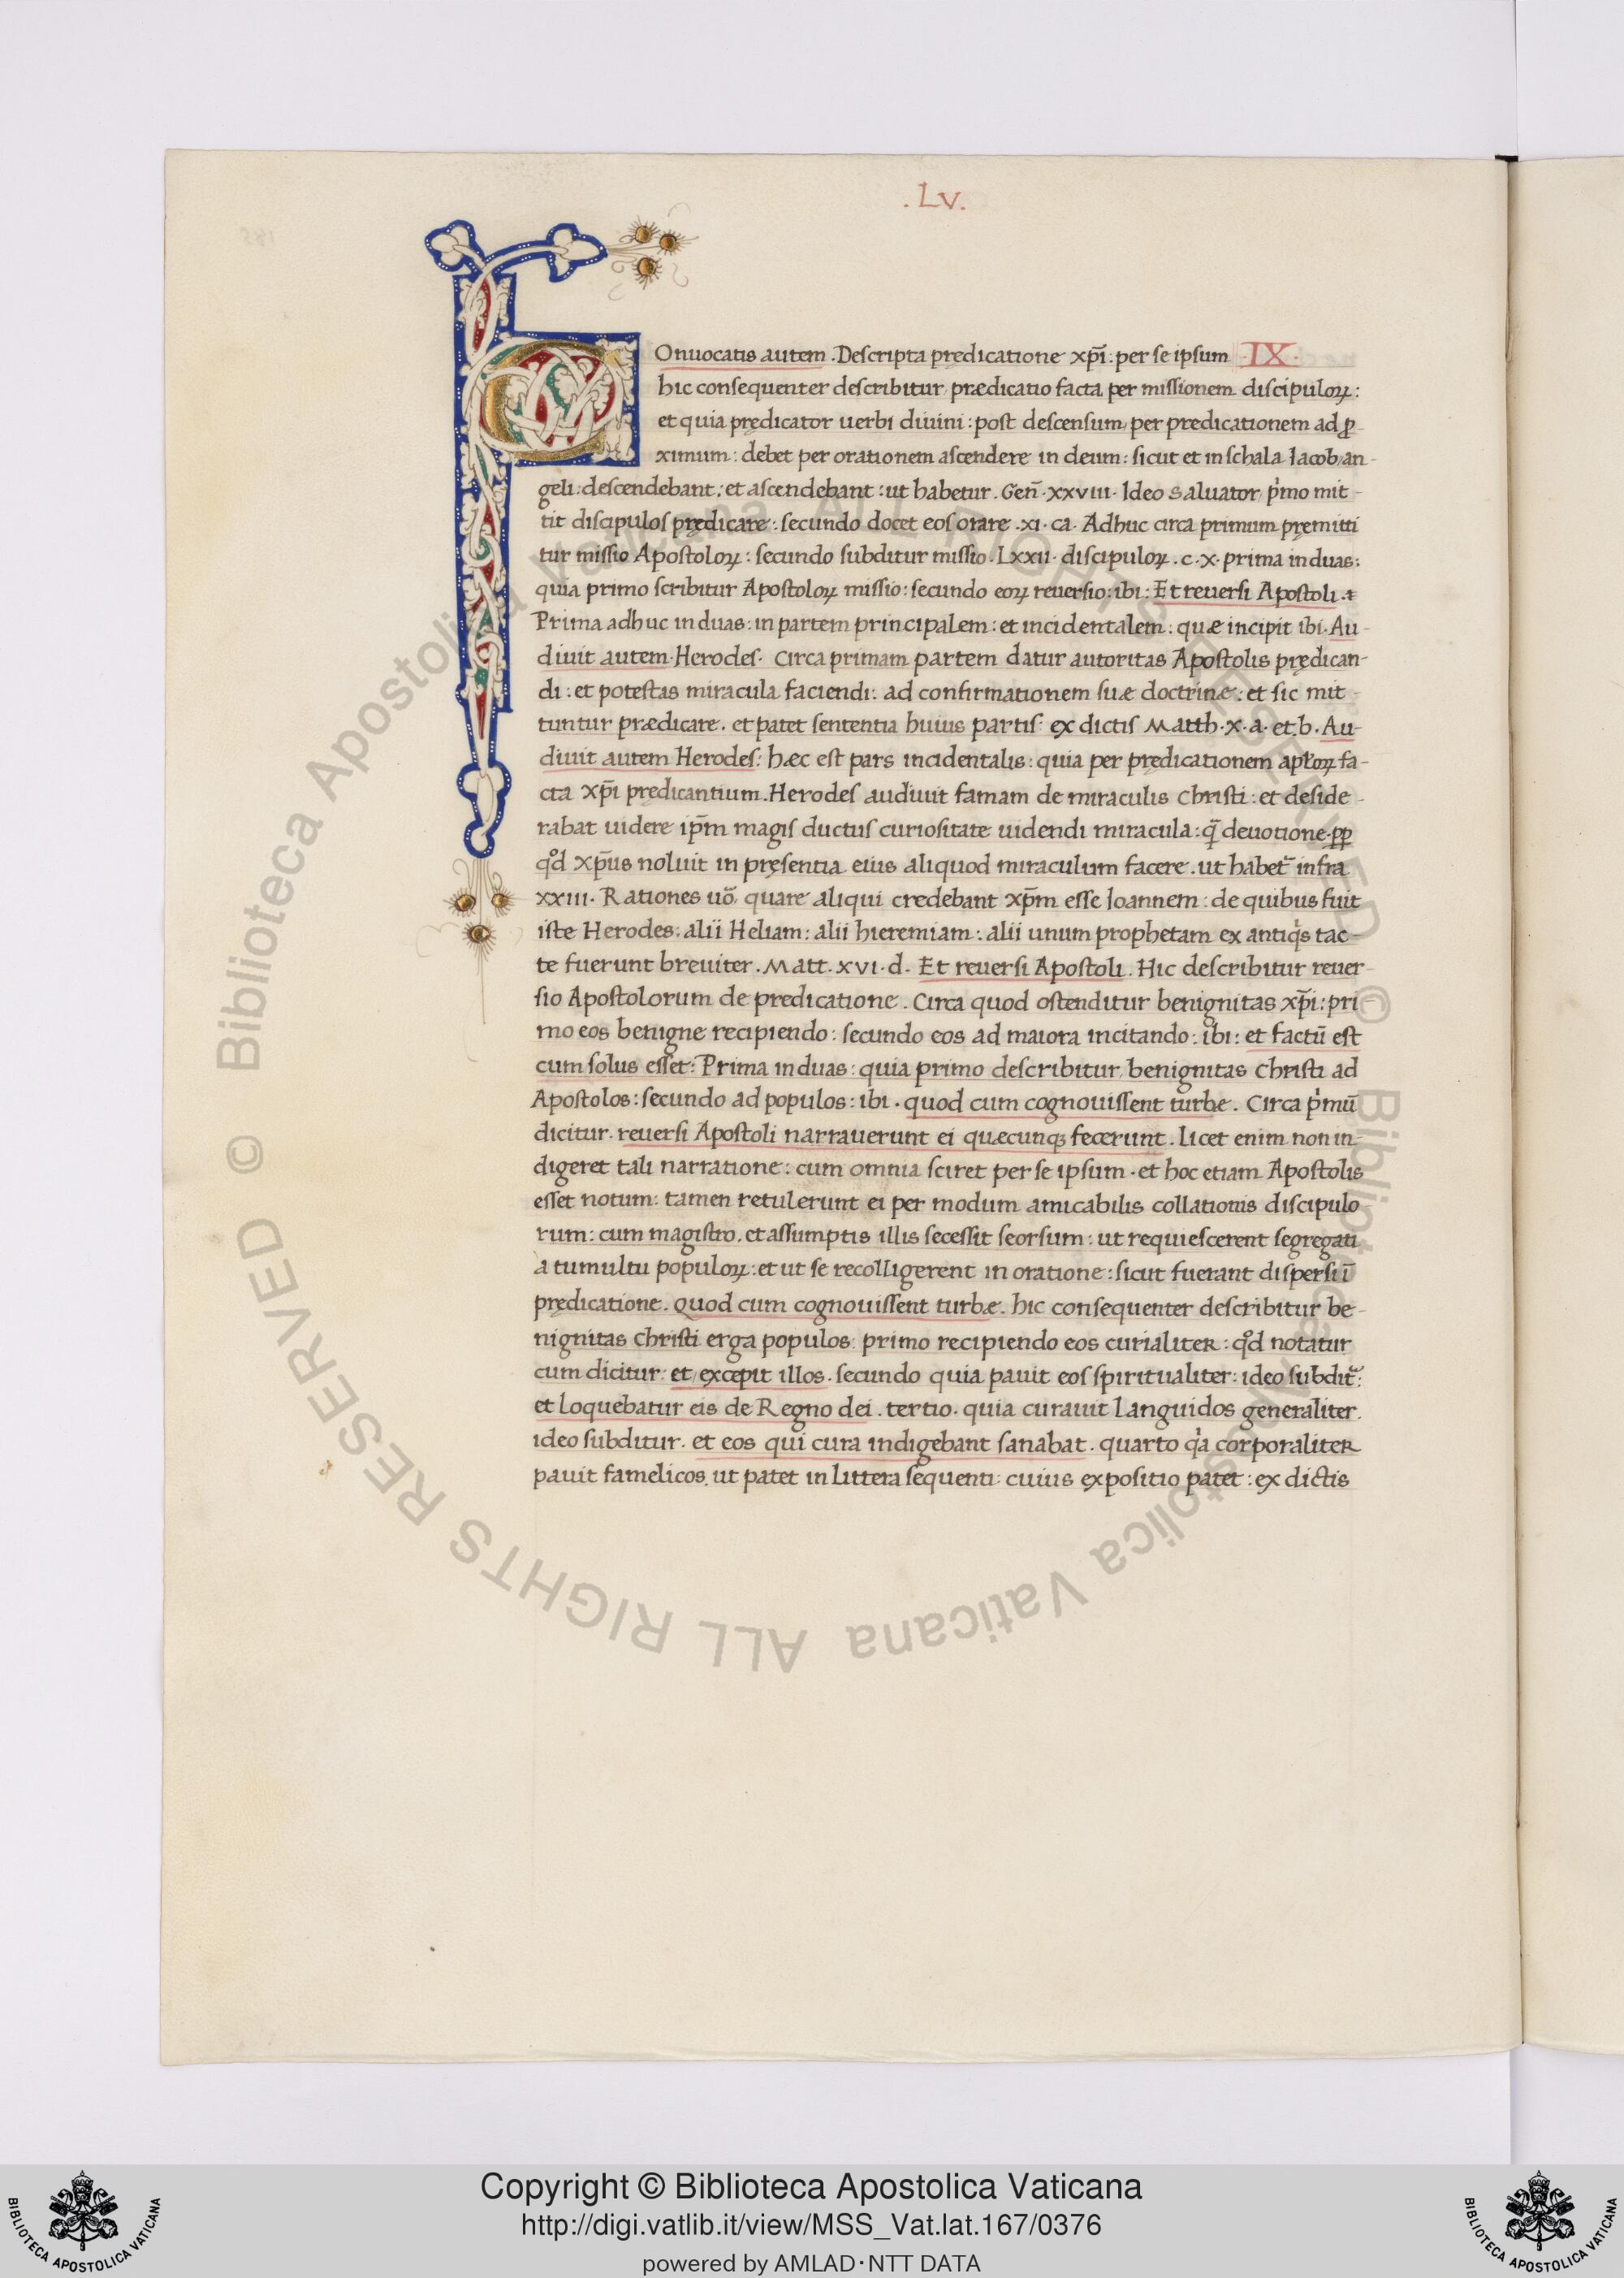 .Lv.
COnuocatis autem. Descripta predicatione xp̄i: per se ipsum .IX.
hic consequenter describitur prædicatio facta per missionem discipuloꝝ:
et quia prędicator uerbi diuini: post descensum per predicationem ad ꝓ-
ximum: debet per orationem ascendere in deum: sicut et in schala Iacob an-
geli: descendebant: et ascendebant: ut habetur. Gen̄. xxviii. Ideo Saluator pͥmo mit-
tit discipulos prędicare: secundo docet eos orare. xi. ca. Adhuc circa primum pręmitti
tur missio Apostoloꝝ: secundo subditur missio. Lxxii. discipuloꝝ. c. x. prima in duas:
quia primo scribitur Apostoloꝝ missio: secundo eoꝝ reuersio: ibi: Et reuersi Apostoli.
Prima adhuc in duas: in partem principalem: et incidentalem: quæ incipit ibi. Au-
diuit autem Herodes. Circa primam partem datur autoritas Apostolis prędican-
di: et potestas miracula faciendi: ad confirmationem suæ doctrinæ: et sic mit-
tuntur prædicare. et patet sententia huius partis ex dictis Matth. x. a. et. b. Au-
diuit autem Herodes: hæc est pars incidentalis: quia per prędicationem apl̄oꝝ fa-
cta xp̄i predicantium. Herodes audiuit famam de miraculis Christi: et deside-
rabat uidere ip̄m magis ductus curiositate uidendi miracula: q̄ deuotione. ꝓꝑ
qd̊ xp̄us noluit in pręsentia eius aliquod miraculum facere. ut habet᷑ infra
xxiii. Rationes uō, quare aliqui credebant xp̄m esse Ioannem: de quibus fuit
iste Herodes: alii Heliam: alii hieremiam: alii unum prophetam ex antiqͥs tac-
te fuerunt breuiter. Matt. xvi. d. Et reuersi Apostoli. Hic describitur reuer-
sio Apostolorum de predicatione. Circa quod ostenditur benignitas xp̄i: pri-
mo eos benigne recipiendo: secundo eos ad maiora incitando: ibi: et factū est
cum solus esset: Prima in duas: quia primo describitur benignitas Christi ad
Apostolos: secundo ad populos: ibi. quod cum cognouissent turbe. Circa pͥmū
dicitur. reuersi Apostoli narrauerunt ei quæcunqꝫ fecerunt. Licet enim non in-
digeret tali narratione: cum omnia sciret per se ipsum. et hoc etiam Apostolis
esset notum: tamen retulerunt ei per modum amicabilis collationis discipulo
rum: cum magistro. et assumptis illis secessit seorsum: ut requiescerent segregati
a tumultu populoꝝ: et ut se recolligerent in oratione: sicut fuerant dispersi ī
prędicatione. Quod cum cognouissent turbæ. hic consequenter describitur be-
nignitas Christi erga populos: primo recipiendo eos curialiter: qd̊ notatur
cum dicitur: et excepit illos. secundo quia pauit eos spiritualiter: ideo subdit᷑:
et loquebatur eis de Regno dei. tertio. quia curauit Languidos generaliter.
ideo subditur. et eos qui cura indigebant sanabat. quarto qͣ corporaliter
pauit famelicos. ut patet in Littera sequenti: cuius expositio patet: ex dictis
© Biblioteca Apostolica Vaticana ALL RIGHTS RESERVED © Biblioteca Apostolica Vaticana ALL RIGHTS RESERVED
BIBLIOTECA APOSTOLICA VATICANA
Copyright © Biblioteca Apostolica Vaticana
http://digi.vatlib.it/view/MSS_Vat.lat.167/0376
powered by AMLAD · NTT DATA
BIBLIOTECA APOSTOLICA VATICANA